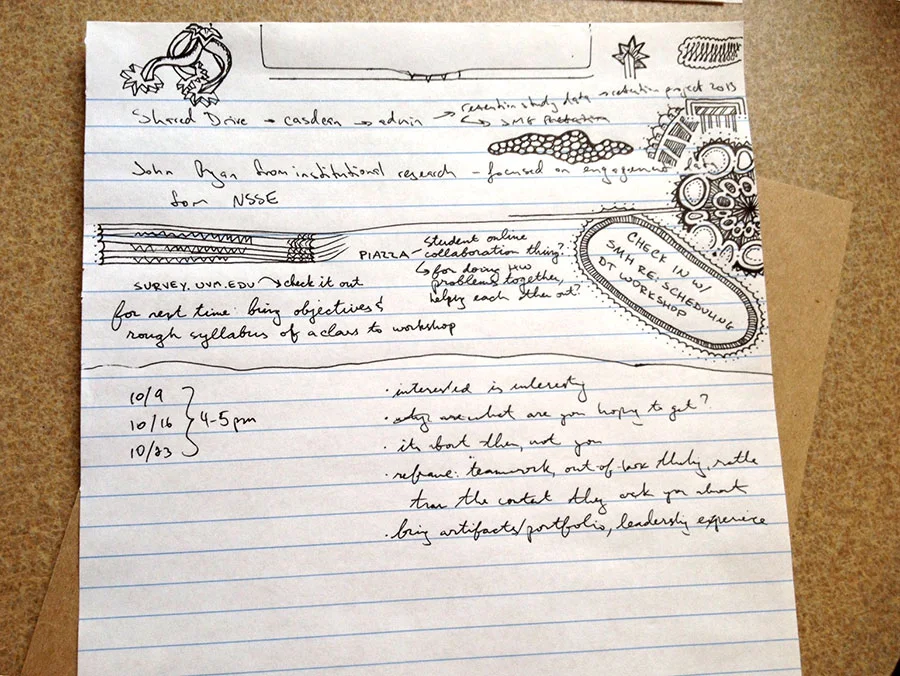 Shared Drive → casdean → admin → retention study data → retention project 2013
↳ SMF
John Ryan from institutional research – focused on engagement
from NSSE
PIAZZA – student online
collaboration thing?
↳ for doing HW
problems together,
helping each other out?
CHECK IN W/
SMH RE. SCHEDULING
DT WORKSHOP
SURVEY.UVM.EDU → check it out
for next time: bring objectives &
rough syllabus of a class to workshop
10/9
10/16 } 4-5pm
10/23
· interested is interesting
· what are you hoping to get?
· it's about them, not you
· reframe: teamwork, out-of-box thinking, rather
than the content they ask you about
· bring artifacts/portfolio, leadership experience